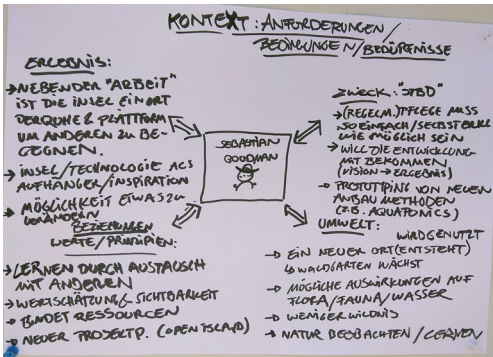 KONTEXT: ANFORDERUNGEN/
BEDINGUNGEN/BEDÜRFNISSE
ERGEBNIS:
→ NEBEN DER "ARBEIT"
IST DIE INSEL EIN ORT
DER RUHE & PLATTFORM
UM ANDEREN ZU BE-
GEGNEN.
→ INSEL/TECHNOLOGIE ALS
AUFHÄNGER/INSPIRATION
→ MÖGLICHKEIT ETWAS ZU
VERÄNDERN
BEZIEHUNGEN
WERTE/PRINZIPIEN:
→ LERNEN DURCH AUSTAUSCH
MIT ANDEREN
→ WERTSCHÄTZUNG & SICHTBARKEIT
→ BINDET RESSOURCEN
→ NEUER PROJEKTP. (OPEN ISLAND)
SEBASTIAN
GOODMAN
ZWECK: "JTBD"
→ (REGELM.) PFLEGE MUSS
SO EINFACH/SELBSTERKL.
WIE MÖGLICH SEIN
→ WILL DIE ENTWICKLUNG
MIT BEKOMMEN
(VISION → ERGEBNIS)
→ PROTOTYPING VON NEUEN
ANBAU METHODEN
(Z.B. AQUAPONICS)
UMWELT:
WIRD GENUTZT
→ EIN NEUER ORT (ENTSTEHT)
↳ WALDGARTEN WÄCHST
→ MÖGLICHE AUSWIRKUNGEN AUF
FLORA/FAUNA/WASSER
→ WENIGER WILDNIS
→ NATUR BEOBACHTEN/LERNEN